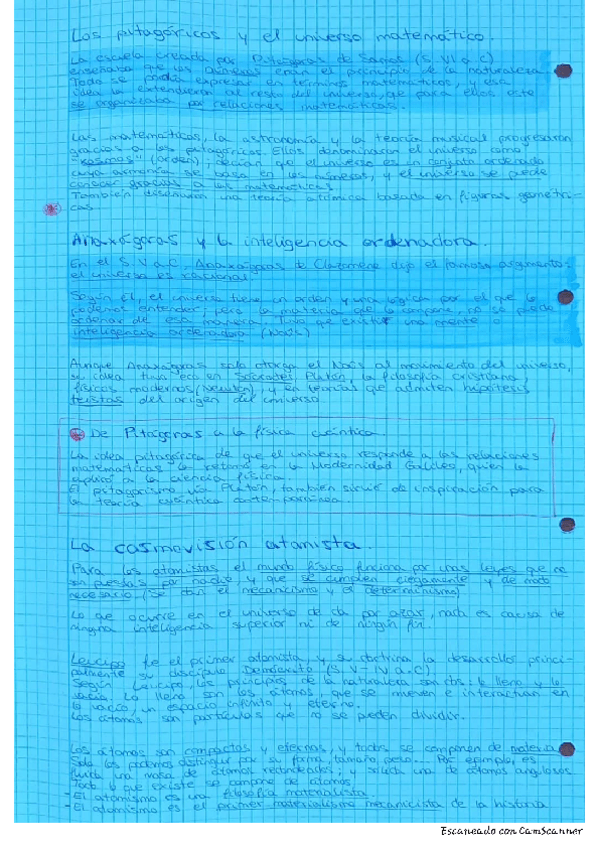 Los pitagóricos y el universo matemático.
La escuela creada por Pitágoras de Samos (S. VI a.C)
enseñaba que los números eran el principio de la naturaleza.
Todo se podía expresar en términos matemáticos, y esta
idea la extendieron al resto del universo, que para ellos este
se organizaba por relaciones matemáticas.
Las matemáticas, la astronomía y la teoría musical progresaron
gracias a los pitagóricos. Ellos denominaron el universo como
"kosmos" (orden); decían que el universo es un conjunto ordenado
cuya armonía se basa en los números, y el universo se puede
conocer gracias a las matemáticas.
También diseñaron una teoría atómica basada en figuras geométri-
cas.
Anaxágoras y la inteligencia ordenadora.
En el S. V a.C, Anaxágoras de Clazomene dijo el famoso argumento:
el universo es racional.
Según él, el universo tiene un orden y una lógica por el que lo
podemos entender; pero la materia que lo compone, no se puede
ordenar de esa manera. Tuvo que existir una mente o
inteligencia ordenadora (Noûs)
Aunque Anaxágoras solo otorga el Noûs al movimiento del universo,
su idea tuvo eco en Sócrates, Platón, la filosofía cristiana,
físicos modernos (Newton), y en teorías que admiten hipótesis
teístas del origen del universo.
De Pitágoras a la física cuántica.
La idea pitagórica de que el universo responde a las relaciones
matemáticas la retomó en la Modernidad Galileo, quien la
aplicó a la ciencia física.
El pitagorismo, vía Platón, también sirvió de inspiración para
la teoría cuántica contemporánea.
La cosmovisión atomista.
Para los atomistas el mundo físico funciona por unas leyes que no
son puestas por nadie, y que se cumplen ciegamente y de modo
necesario (Se dan el mecanicismo y el determinismo)
Lo que ocurre en el universo se da por azar, nada es causa de
ninguna inteligencia superior ni de ningún fin.
Leucipo fue el primer atomista y su doctrina la desarrolló princi-
palmente su discípulo Demócrito (S. V - IV a.C)
Según Leucipo, los principios de la naturaleza son dos: lo lleno y lo
vacío. Lo lleno son los átomos, que se mueven e interactúan en
lo vacío, un espacio infinito y eterno.
Los átomos son partículas que no se pueden dividir.
Los átomos son compactos y eternos, y todos se componen de materia
Solo los podemos distinguir por su forma, tamaño, peso... Por ejemplo, es
fluida una masa de átomos redondeados, y sólida una de átomos angulosos
Todo lo que existe se compone de átomos.
- El atomismo es una filosofía materialista.
- El atomismo es el primer materialismo mecanicista de la historia
Escaneado con CamScanner